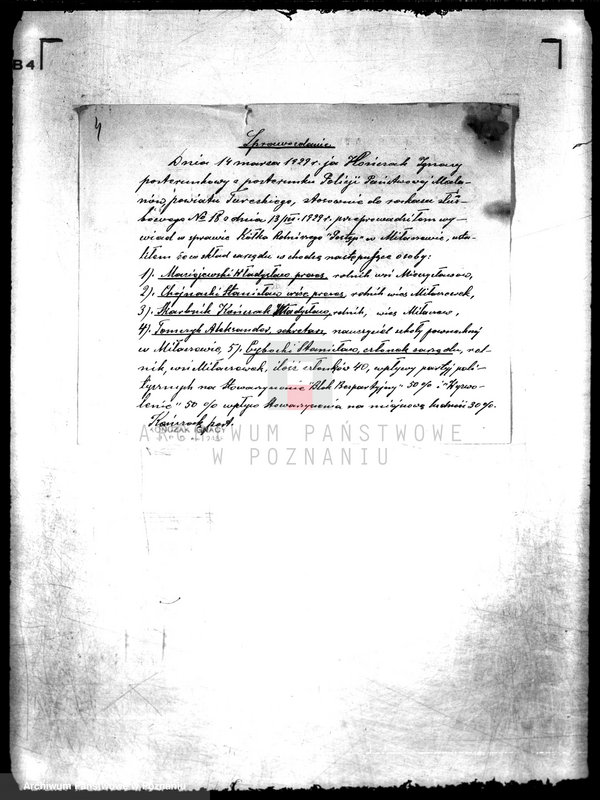 B4
4
Sprawozdanie
Dnia 14 marca 1929 r. ja Kończak Ignacy
posterunkowy z posterunku Policji Państwowej Mala-
nów, powiatu Tureckiego, stosownie do rozkazu służ-
bowego No 18 z dnia 13/III. 1929 r. przeprowadziłem wy-
wiad w sprawie Kółka Rolniczego "Postęp" w Miłaczewie, usta-
liłem że w skład zarządu wchodzą następujące osoby:
1). Maciejewski Władysław prezes, rolnik wsi
2). Chojnacki Stanisław wice prezes, rolnik wieś Miłaczewek,
3). Skarbnik Kończak Władysław, rolnik, wieś Miłaczew,
4). Tomczyk Aleksander, sekretarz, nauczyciel szkoły powszechnej
w Miłaczewie, 5). Cybocki Stanisław, członek zarządu, rol-
nik, wsi Miłaczewek, ilość członków 40, wpływy partyj poli-
tycznych na stowarzyszenie "Blok Bezpartyjny" 50% i "Wyzwo-
lenie" 50% wpływ stowarzyszenia na miejscową ludność 30%.
Kończak post.
KOŃCZAK IGNACY
ARCHIWUM PAŃSTWOWE
W POZNANIU
Archiwum Państwowe w Poznaniu